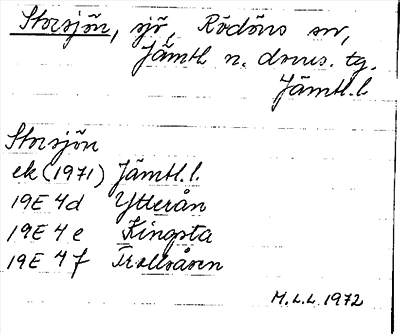 Storsjön, sjö, Rödöns sn,
Jämtl. n. doms. tg.
Jämtl.l.
Storsjön
ek (1971) Jämtl.l.
19E 4d Ytterån
19E 4e Kingsta
19E 4f Trollsåsen
M.L.L. 1972